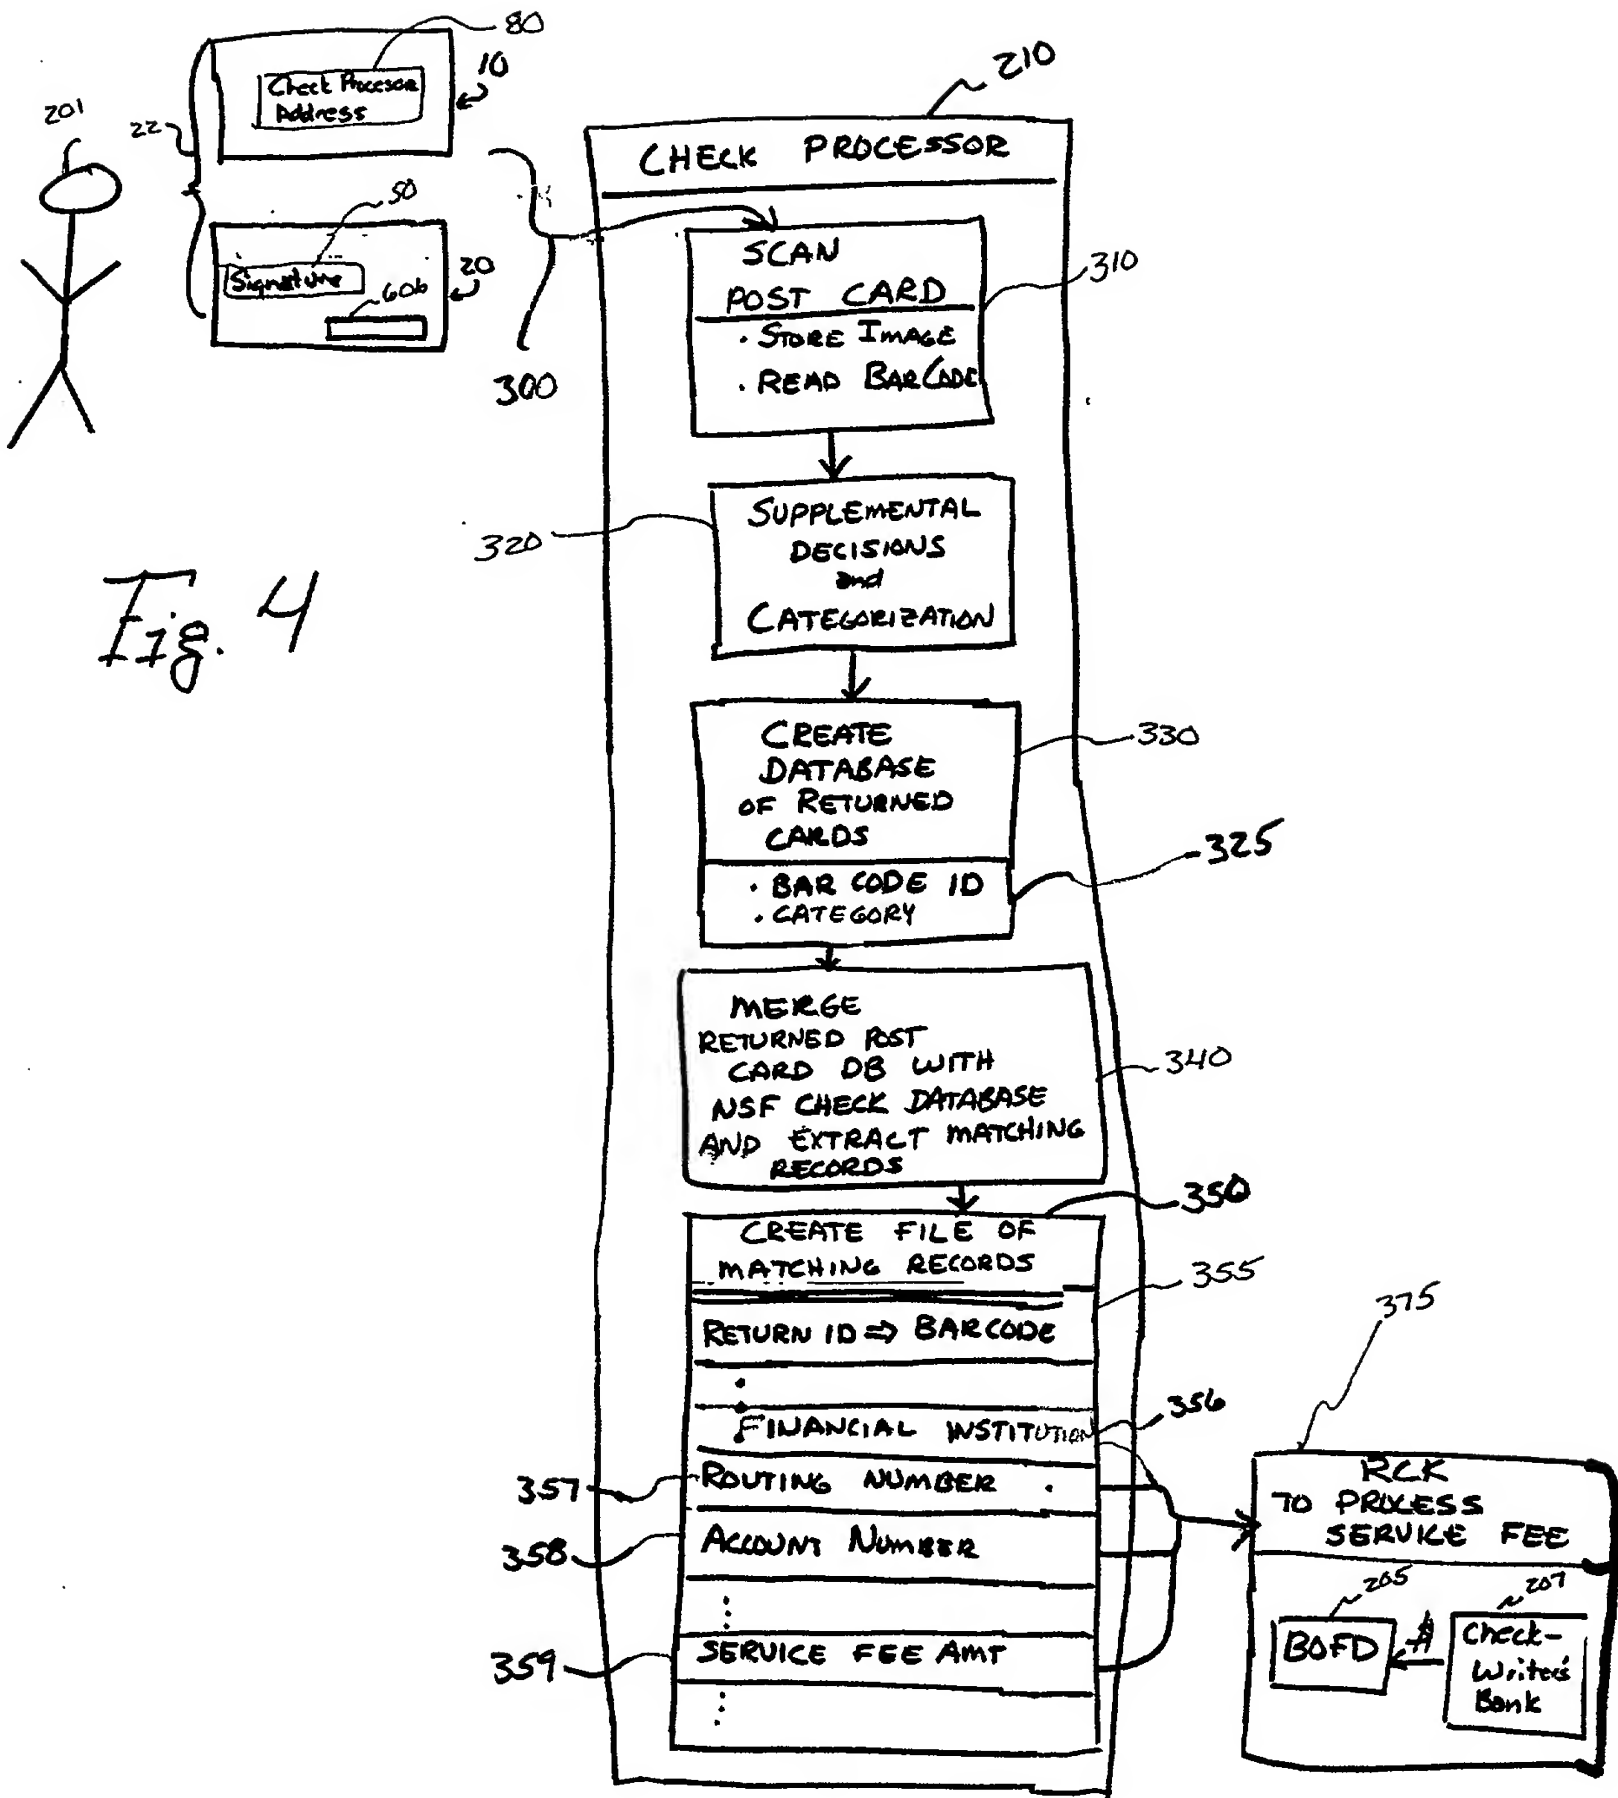 80
Check Processor
Address
10
201
22
50
Signature
20
60b
300
Fig. 4
210
CHECK PROCESSOR
SCAN
POST CARD
310
· STORE IMAGE
· READ BARCODE
320
SUPPLEMENTAL
DECISIONS
and
CATEGORIZATION
CREATE
DATABASE
OF RETURNED
CARDS
330
325
· BAR CODE ID
· CATEGORY
MERGE
RETURNED POST
CARD DB WITH
NSF CHECK DATABASE
AND EXTRACT MATCHING
RECORDS
340
350
CREATE FILE OF
MATCHING RECORDS
355
RETURN ID ⇒ BARCODE
FINANCIAL INSTITUTION
356
357
ROUTING NUMBER
358
ACCOUNT NUMBER
359
SERVICE FEE AMT
375
RCK
TO PROCESS
SERVICE FEE
205
BOFD
$
207
Check-
Writer's
Bank